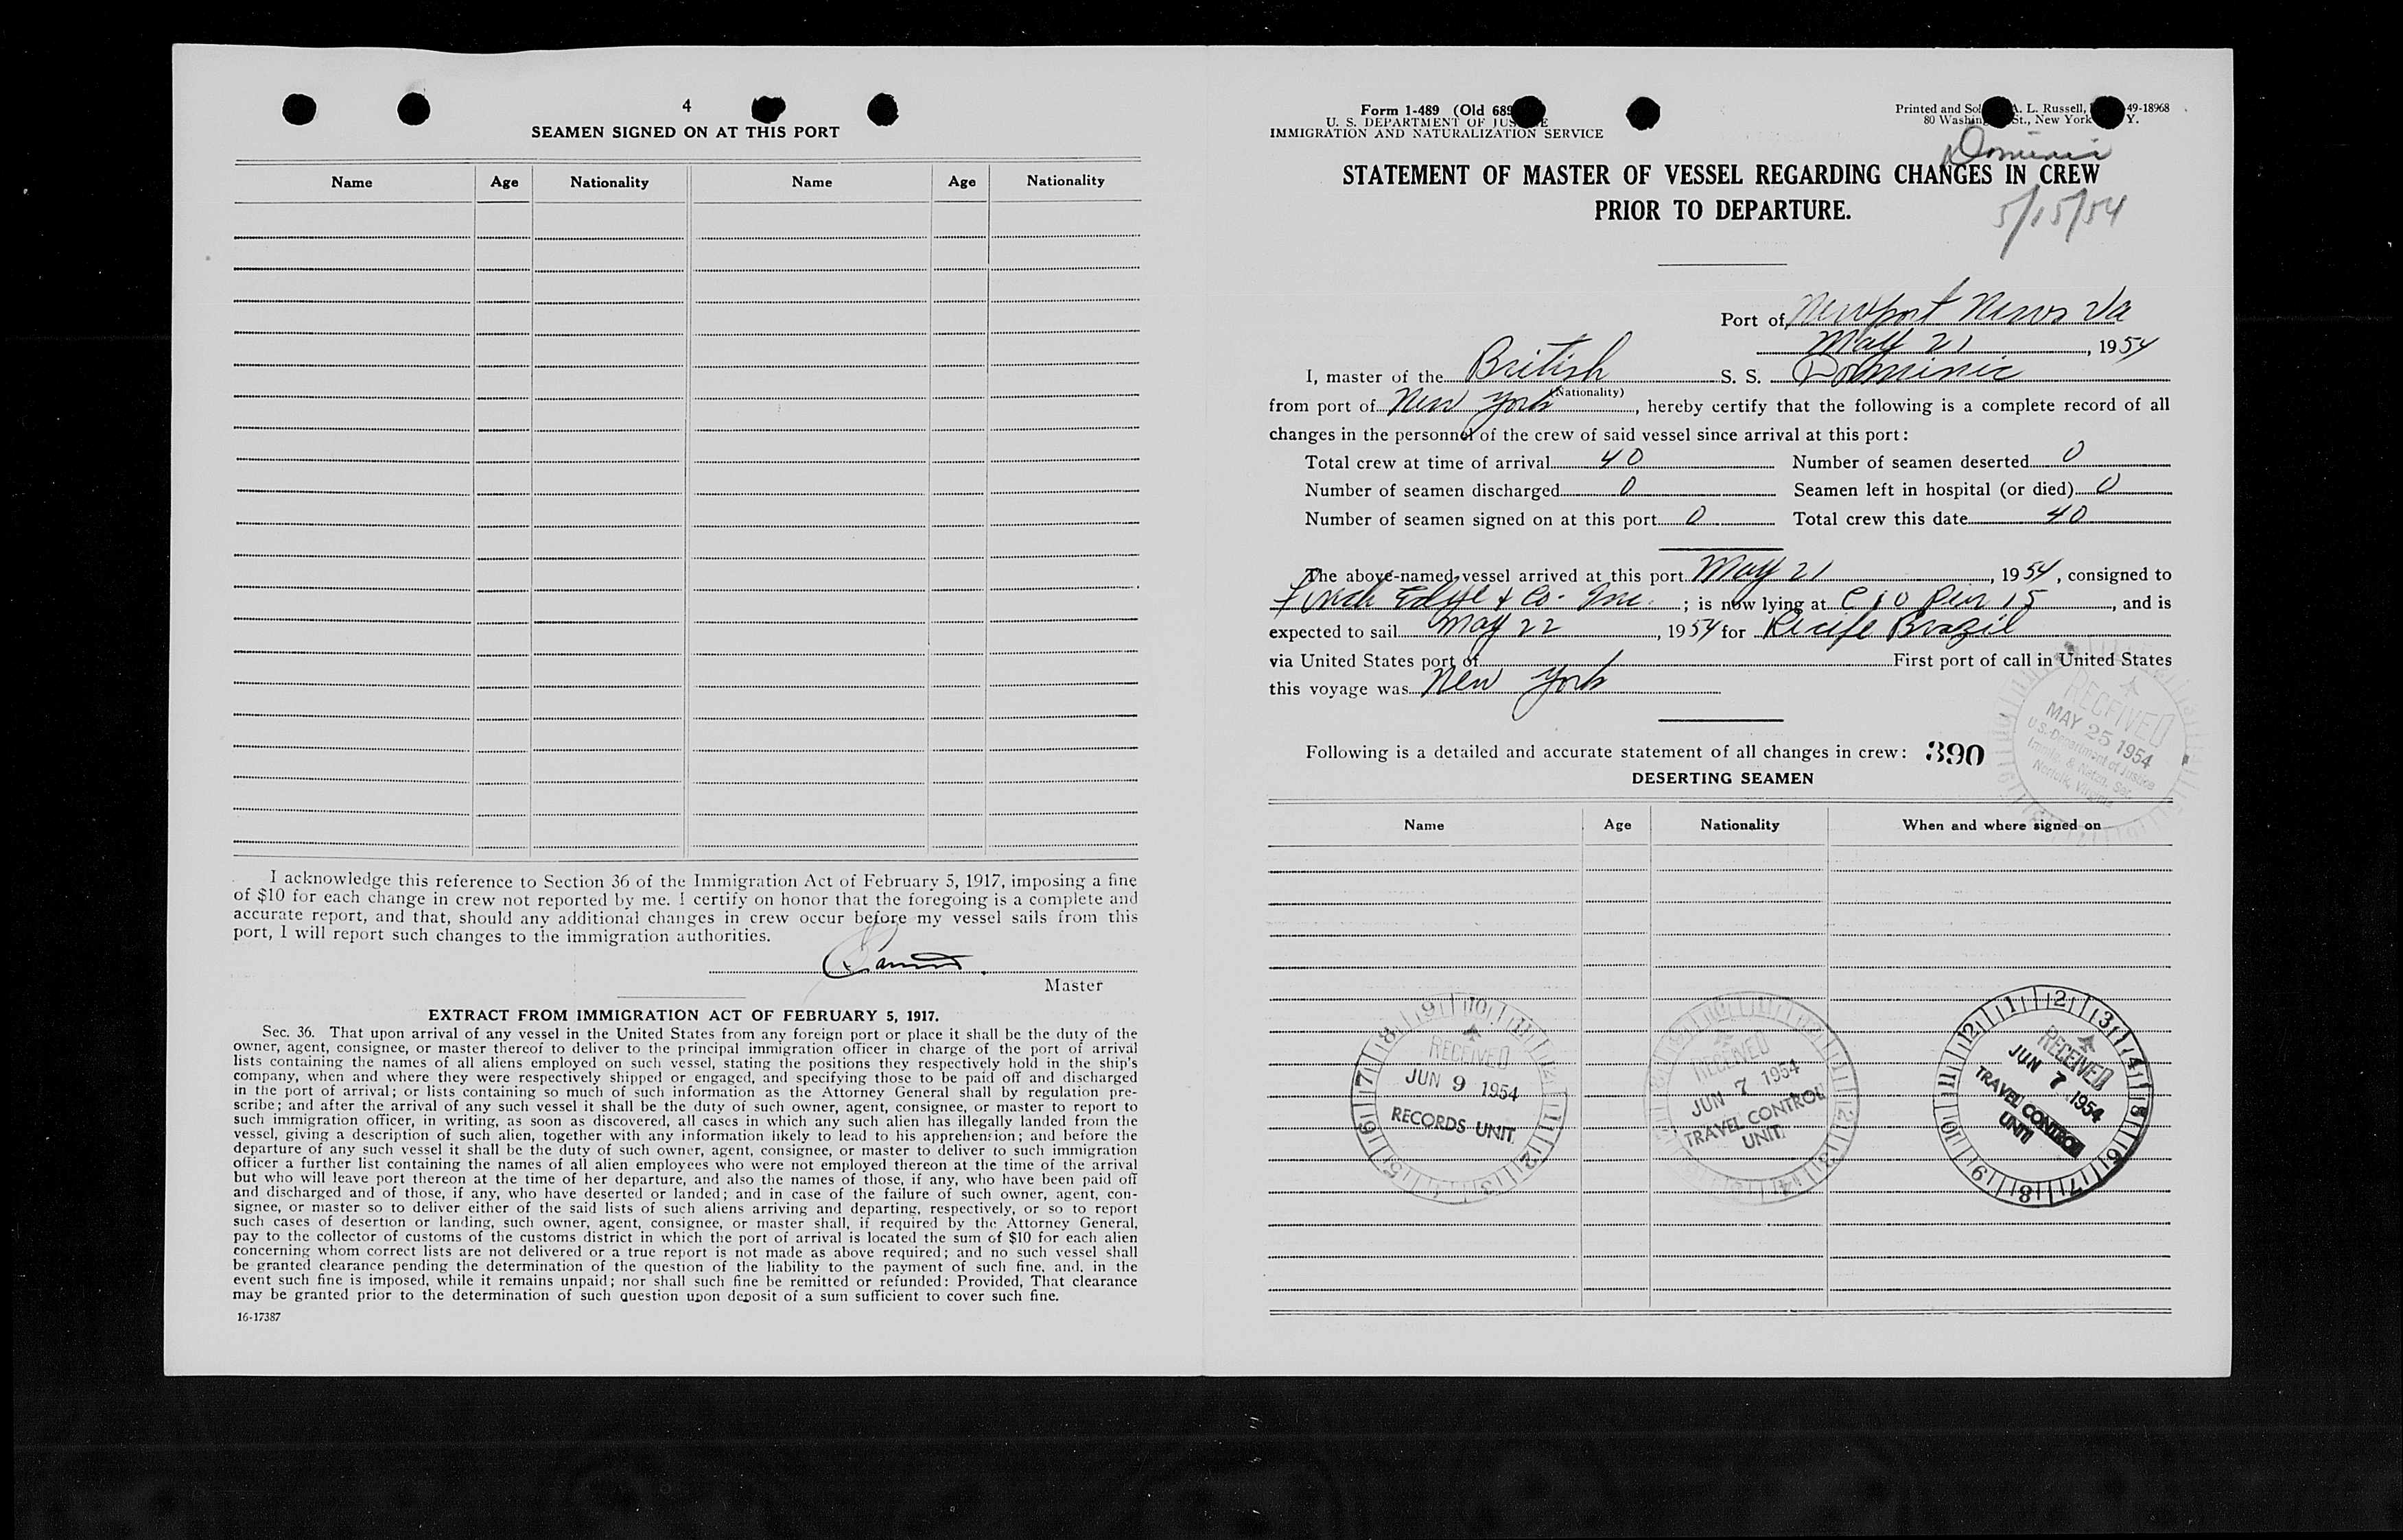 4
SEAMEN SIGNED ON AT THIS PORT
Name Age Nationality Name Age Nationality
I acknowledge this reference to Section 36 of the Immigration Act of February 5, 1917, imposing a fine
of $10 for each change in crew not reported by me. I certify on honor that the foregoing is a complete and
accurate report, and that, should any additional changes in crew occur before my vessel sails from this
port, I will report such changes to the immigration authorities.
Master
EXTRACT FROM IMMIGRATION ACT OF FEBRUARY 5, 1917.
Sec. 36. That upon arrival of any vessel in the United States from any foreign port or place it shall be the duty of the
owner, agent, consignee, or master thereof to deliver to the principal immigration officer in charge of the port of arrival
lists containing the names of all aliens employed on such vessel, stating the positions they respectively hold in the ship's
company, when and where they were respectively shipped or engaged, and specifying those to be paid off and discharged
in the port of arrival; or lists containing so much of such information as the Attorney General shall by regulation pre-
scribe; and after the arrival of any such vessel it shall be the duty of such owner, agent, consignee, or master to report to
such immigration officer, in writing, as soon as discovered, all cases in which any such alien has illegally landed from the
vessel, giving a description of such alien, together with any information likely to lead to his apprehension; and before the
departure of any such vessel it shall be the duty of such owner, agent, consignee, or master to deliver to such immigration
officer a further list containing the names of all alien employees who were not employed thereon at the time of the arrival
but who will leave port thereon at the time of her departure, and also the names of those, if any, who have been paid off
and discharged and of those, if any, who have deserted or landed; and in case of the failure of such owner, agent, con-
signee, or master so to deliver either of the said lists of such aliens arriving and departing, respectively, or so to report
such cases of desertion or landing, such owner, agent, consignee, or master shall, if required by the Attorney General,
pay to the collector of customs of the customs district in which the port of arrival is located the sum of $10 for each alien
concerning whom correct lists are not delivered or a true report is not made as above required; and no such vessel shall
be granted clearance pending the determination of the question of the liability to the payment of such fine, and, in the
event such fine is imposed, while it remains unpaid; nor shall such fine be remitted or refunded: Provided, That clearance
may be granted prior to the determination of such question upon deposit of a sum sufficient to cover such fine.
16-17387
Form 1-489 (Old 689
U. S. DEPARTMENT OF JUSTICE
IMMIGRATION AND NATURALIZATION SERVICE
Printed and Sol A. L. Russell, 49-18968
80 Washin St., New York Y.
Dominic
STATEMENT OF MASTER OF VESSEL REGARDING CHANGES IN CREW
PRIOR TO DEPARTURE.
5/15/54
Port of Newport News Va
May 21, 1954
I, master of the British S. S. Dominic
(Nationality)
from port of New York, hereby certify that the following is a complete record of all
changes in the personnel of the crew of said vessel since arrival at this port:
Total crew at time of arrival 40 Number of seamen deserted 0
Number of seamen discharged 0 Seamen left in hospital (or died) 0
Number of seamen signed on at this port 0 Total crew this date 40
The above-named vessel arrived at this port May 21, 1954, consigned to
Funch Edye & Co. Inc.; is now lying at C & O Pier 15, and is
expected to sail May 22, 1954 for Recife Brazil
via United States port of First port of call in United States
this voyage was New York
RECEIVED
MAY 25 1954
U.S. Department of Justice
Immig. & Natzn. Ser.
Norfolk, Virginia
Following is a detailed and accurate statement of all changes in crew: 390
DESERTING SEAMEN
Name Age Nationality When and where signed on
RECEIVED
JUN 9 1954
RECORDS UNIT
RECEIVED
JUN 7 1954
TRAVEL CONTROL
UNIT
RECEIVED
JUN 7 1954
TRAVEL CONTROL
UNIT